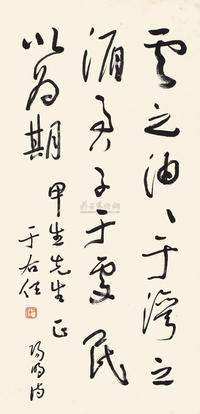 雲之油、于灣之
湄君子于民
以為期
甲生先生正
于右任
陽明詩